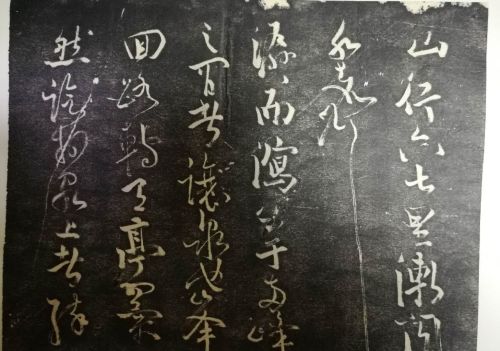 山行六七里漸聞
水聲
潺々而瀉出于兩峰
之間者讓泉也峯
回路轉有亭翼
然臨於泉上者醉